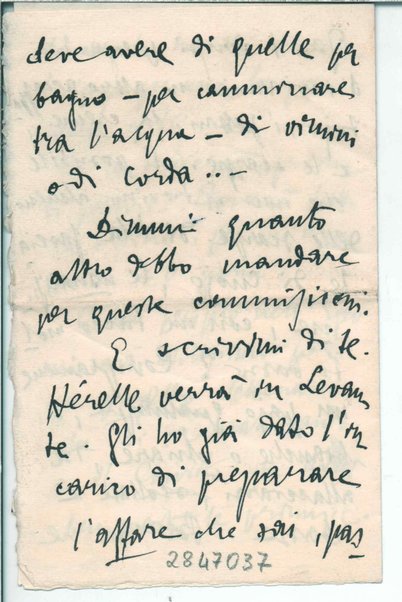 deve avere di quelle per
bagno – per camminare
tra l'acqua – di vimini
o di corda ..–
Dimmi quanto
altro debbo mandare
per queste commissioni.
E scrivimi di te.
Hérelle verrà in Levan
te. Gli ho già dato l'in
carico di preparare
l'affare che sai, pas
2847037